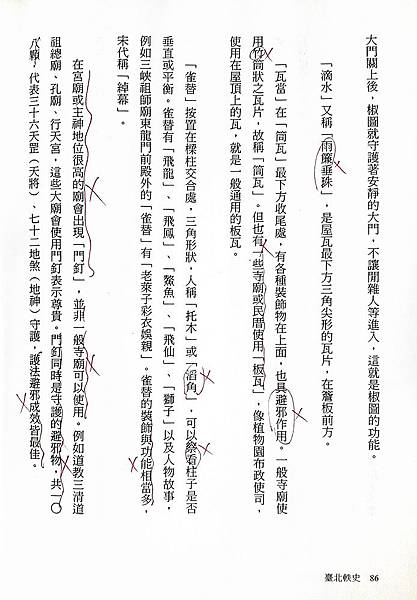 大門關上後，椒圖就守護著安靜的大門，不讓閒雜人等進入，這就是椒圖的功能。
「滴水」又稱「雨簾垂珠」，是屋瓦最下方三角尖形的瓦片，在簷板前方。
「瓦當」在「筒瓦」最下方收尾處，有各種裝飾物在上面，也具避邪作用。一般寺廟使
用竹筒狀之瓦片，故稱「筒瓦」。但也有一些寺廟或民厝使用「板瓦」，像植物園布政使司，
使用在屋頂上的瓦，就是一般通用的板瓦。
「雀替」按置在樑柱交合處，三角形狀，人稱「托木」或「滔角」，可以察看柱子是否
垂直或平衡。雀替有「飛龍」、「飛鳳」、「鰲魚」、「飛仙」、「獅子」以及人物故事，
例如三峽祖師廟東龍門前殿外的「雀替」有「老萊子彩衣娛親」。雀替的裝飾與功能相當多，
宋代稱「綽幕」。
在宮廟或主神地位很高的廟會出現「門釘」，並非一般寺廟可以使用。例如道教三清道
祖總廟、孔廟、行天宮，這些大廟會使用門釘表示尊貴。門釘同時是守護的避邪物，共一〇
八顆，代表三十六天罡（天將）、七十二地煞（地神）守護，護法避邪成效皆最佳。
臺北軼史 86